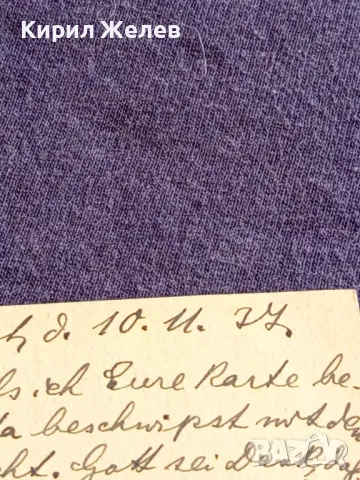 Кирил Желев
d. 10. 11. 37.
ich Eure Karte be
beschwipst mit
Gott sei Dank
BAZAR